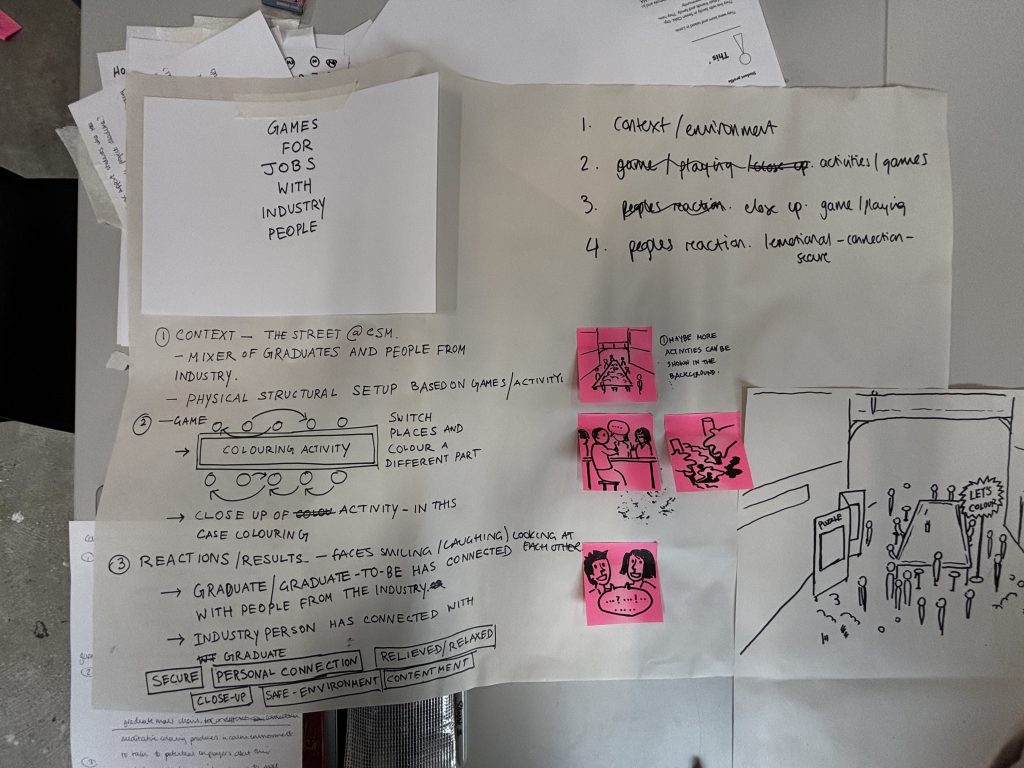 GAMES
FOR
JOBS
WITH
INDUSTRY
PEOPLE
1. Context/environment
2. game/playing /close up. activities/games
3. peoples reaction. close up. game/playing
4. peoples reaction. /emotional-connection-
secure
① CONTEXT — THE STREET @ CSM.
- MIXER OF GRADUATES AND PEOPLE FROM
INDUSTRY.
- PHYSICAL STRUCTURAL SETUP BASED ON GAMES/ACTIVITY.
② —GAME
→ COLOURING ACTIVITY
SWITCH
PLACES AND
COLOUR A
DIFFERENT PART
→ CLOSE UP OF COLOU ACTIVITY - IN THIS
CASE COLOURING
③ REACTIONS/RESULTS — FACES SMILING/LAUGHING/LOOKING AT
EACH OTHER
→ GRADUATE/GRADUATE-TO-BE HAS CONNECTED
WITH PEOPLE FROM THE INDUSTRY.
→ INDUSTRY PERSON HAS CONNECTED WITH
GRADUATE
SECURE PERSONAL CONNECTION RELIEVED/RELAXED
CLOSE-UP SAFE-ENVIRONMENT CONTENTMENT
① MAYBE MORE
ACTIVITIES CAN BE
SHOWN IN THE
BACKGROUND.
...?...!..
LET'S
COLOUR
PUZZLE
This
Student profile
meditative colouring produces a calm environment
to talk to potential employers about